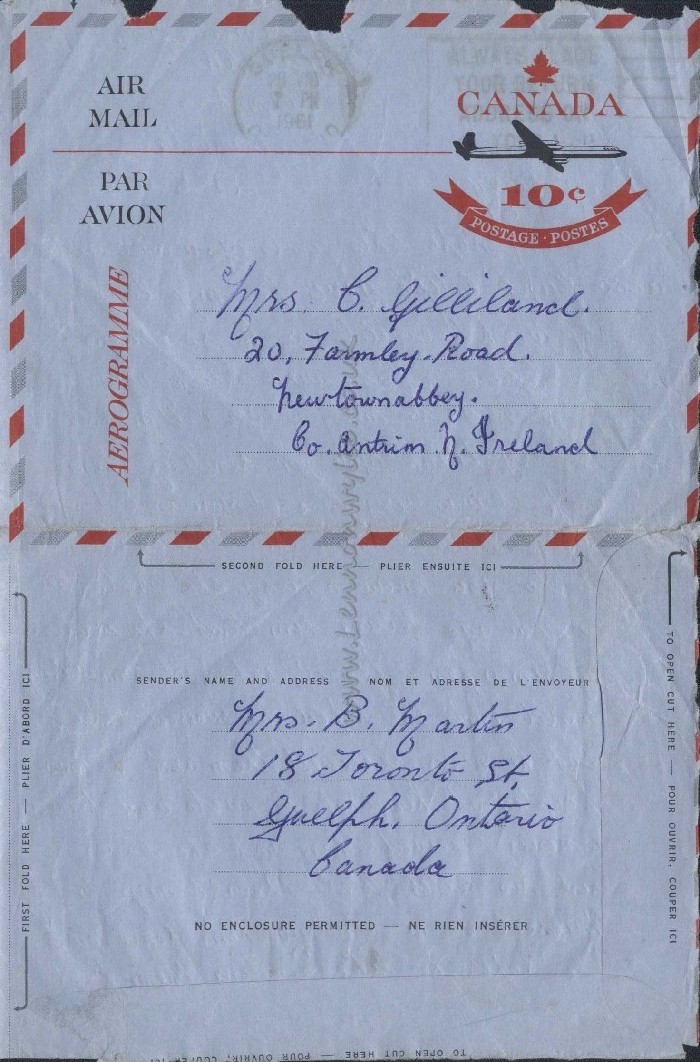 AIR
MAIL
CANADA
PAR
AVION
10¢
POSTAGE · POSTES
AEROGRAMME
1961
Mrs. C. Gilliland.
20, Farmley Road.
Newtownabbey.
Co. Antrim. N. Ireland
www.Lennonwylie.co.uk
SECOND FOLD HERE — PLIER ENSUITE ICI
SENDER'S NAME AND ADDRESS NOM ET ADRESSE DE L'ENVOYEUR
Mrs. B. Martin
18 Toronto St.
Guelph, Ontario
Canada
NO ENCLOSURE PERMITTED — NE RIEN INSÉRER
FIRST FOLD HERE — PLIER D'ABORD ICI
TO OPEN CUT HERE — POUR OUVRIR, COUPER ICI
TO OPEN CUT HERE — POUR OUVRIR, COUPER ICI